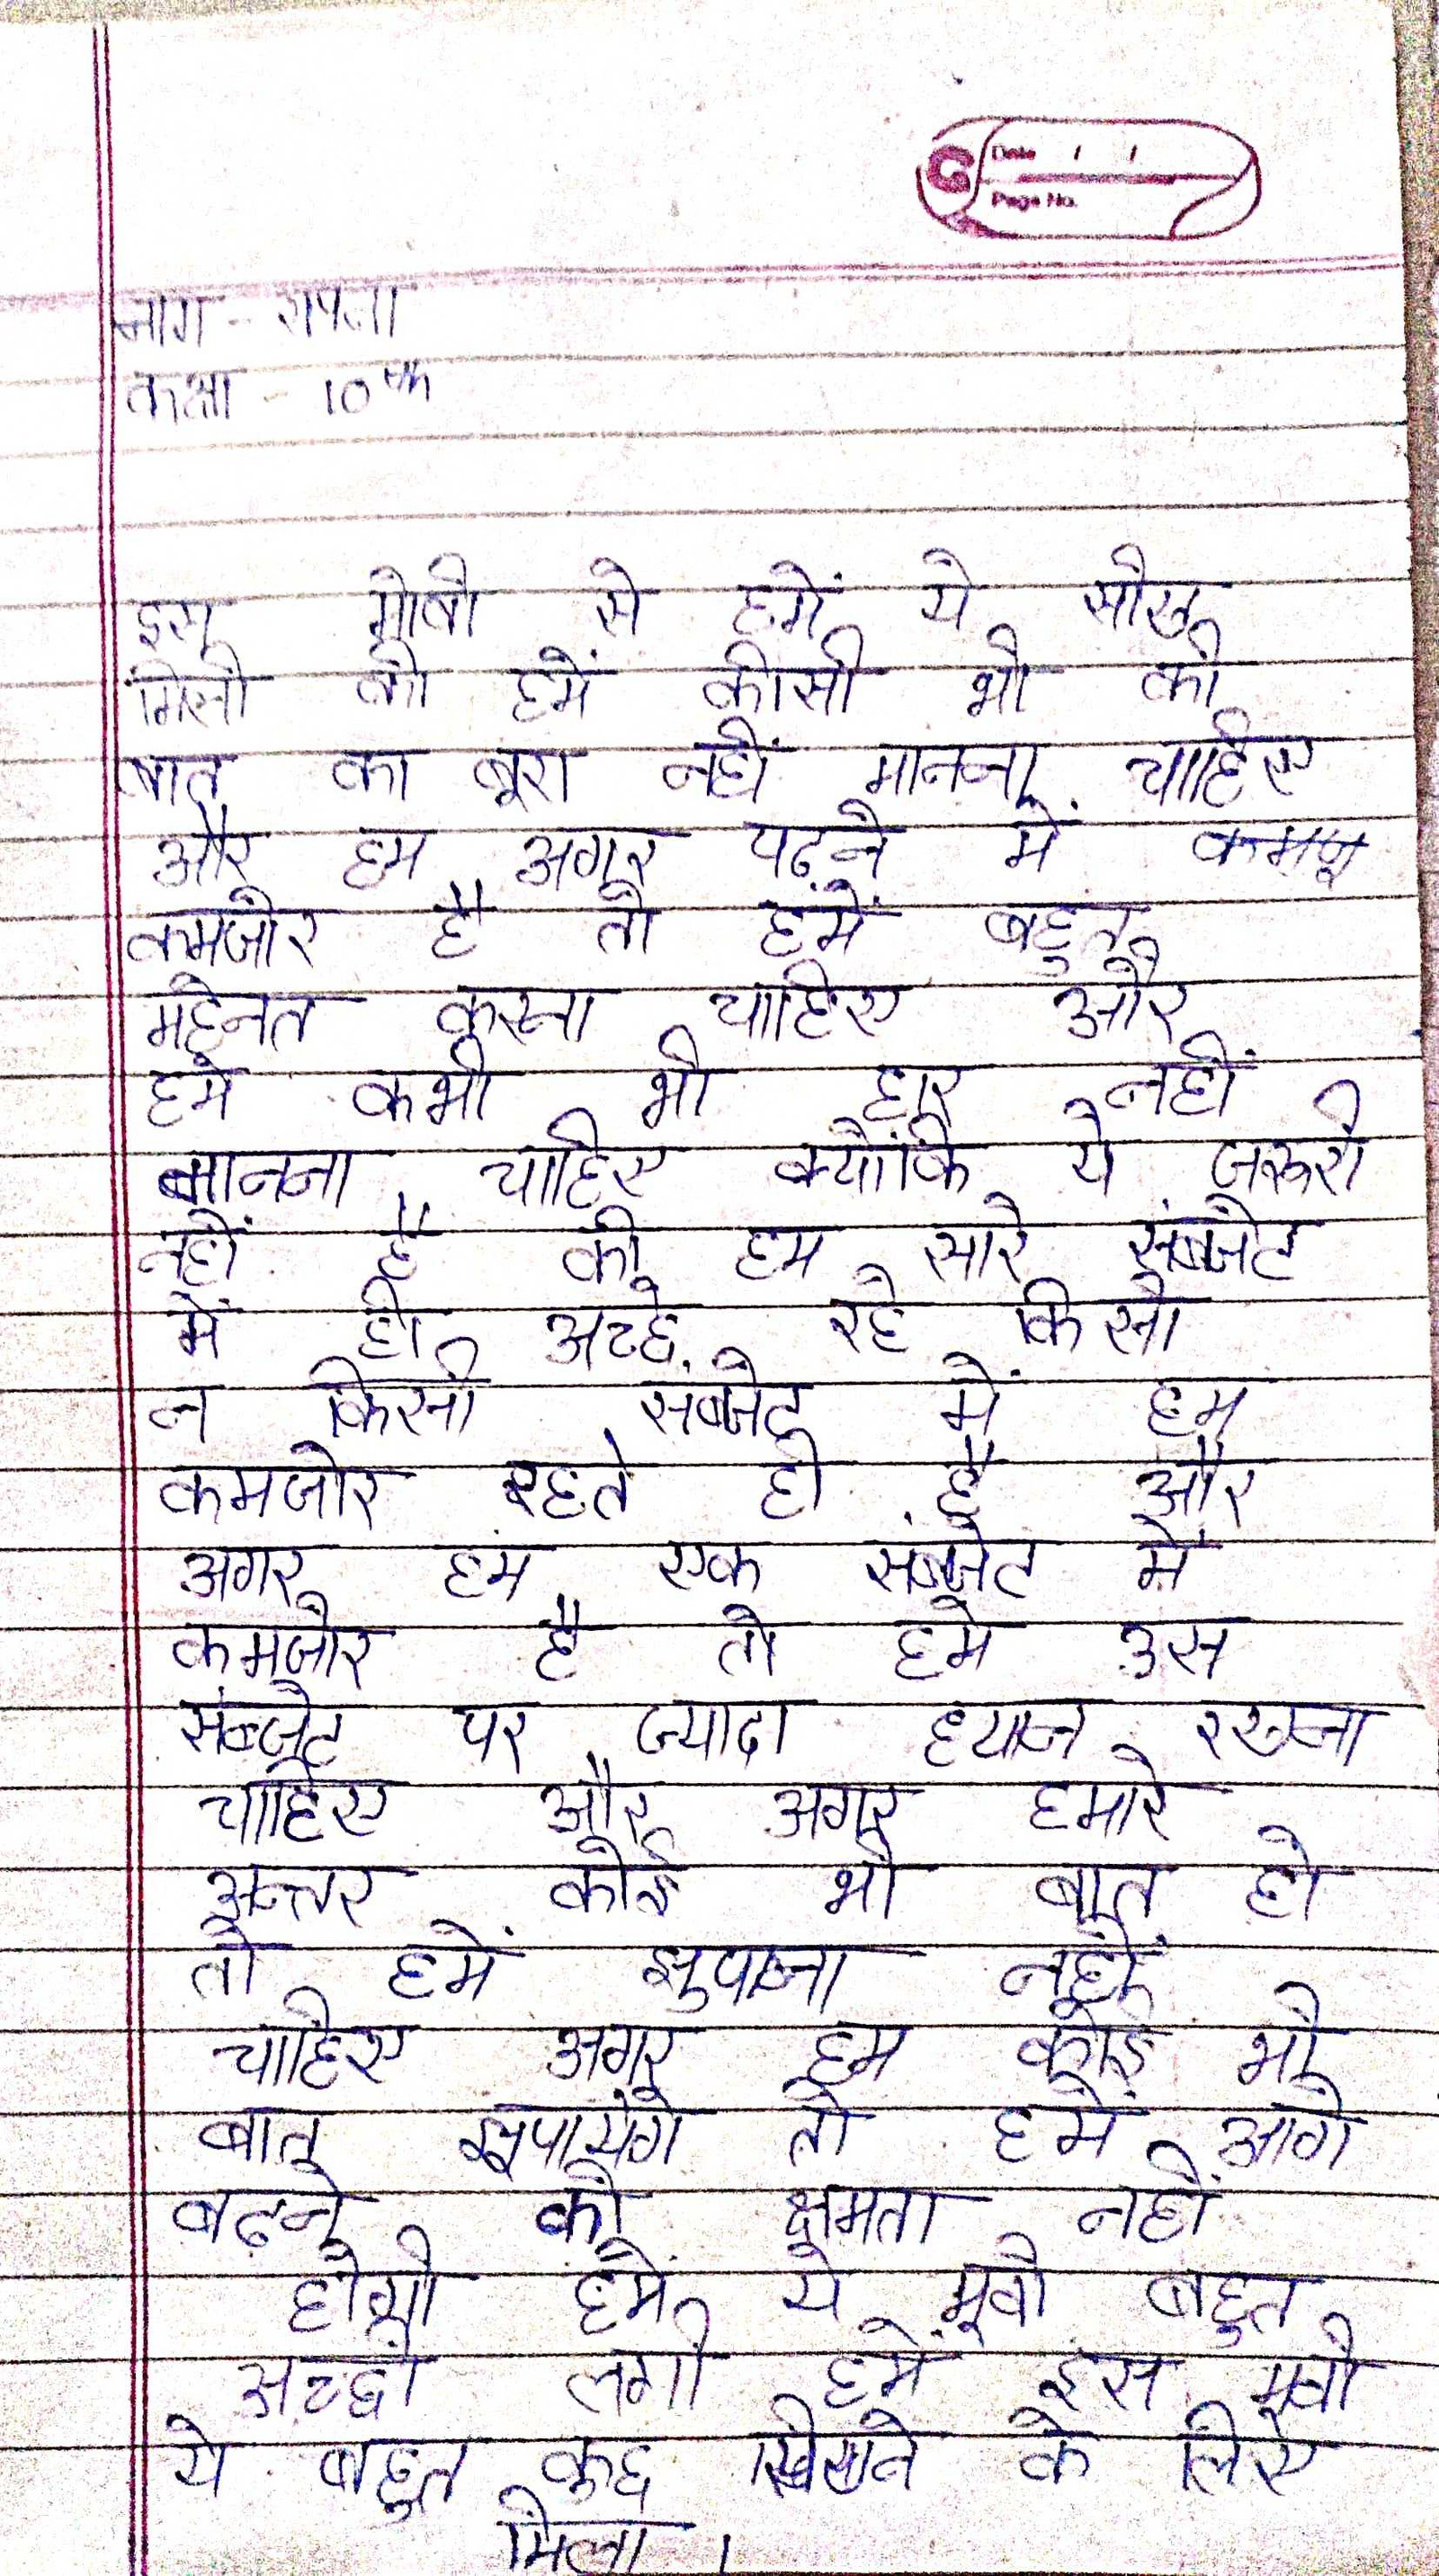 Date
Page No.
नाम -
कक्षा - 10th
इस मोवी से हमें ये सीख
मिली की हमें कीसी भी की
बात का बूरा नहीं मानना चाहिए
और हम अगर पढ़ने में
कमजोर है तो हमें बहुत
महेनत करना चाहिए और
हमें कभी भी हार नहीं
मानना चाहिए क्योंकि ये जरूरी
नहीं है की हम सारे संब्जेट
में ही अच्छे रहे किसी
न किसी संब्जेट में हम
कमजोर रहते ही है और
अगर हम एक संब्जेट में
कमजोर है तो हमे उस
संब्जेट पर ज्यादा ध्यान रखना
चाहिए और अगर हमारे
अन्तर कोई भी बात हो
तो हमें छुपाना नहीं
चाहिए अगर हम कोई भी
बात छुपायेंगे तो हमें आगे
बढ़ने की क्षमता नहीं
होगी हमें ये मूवी बहुत
अच्छी लगी हमें इस मूवी
ये बहुत कुछ के लिए
मिला ।